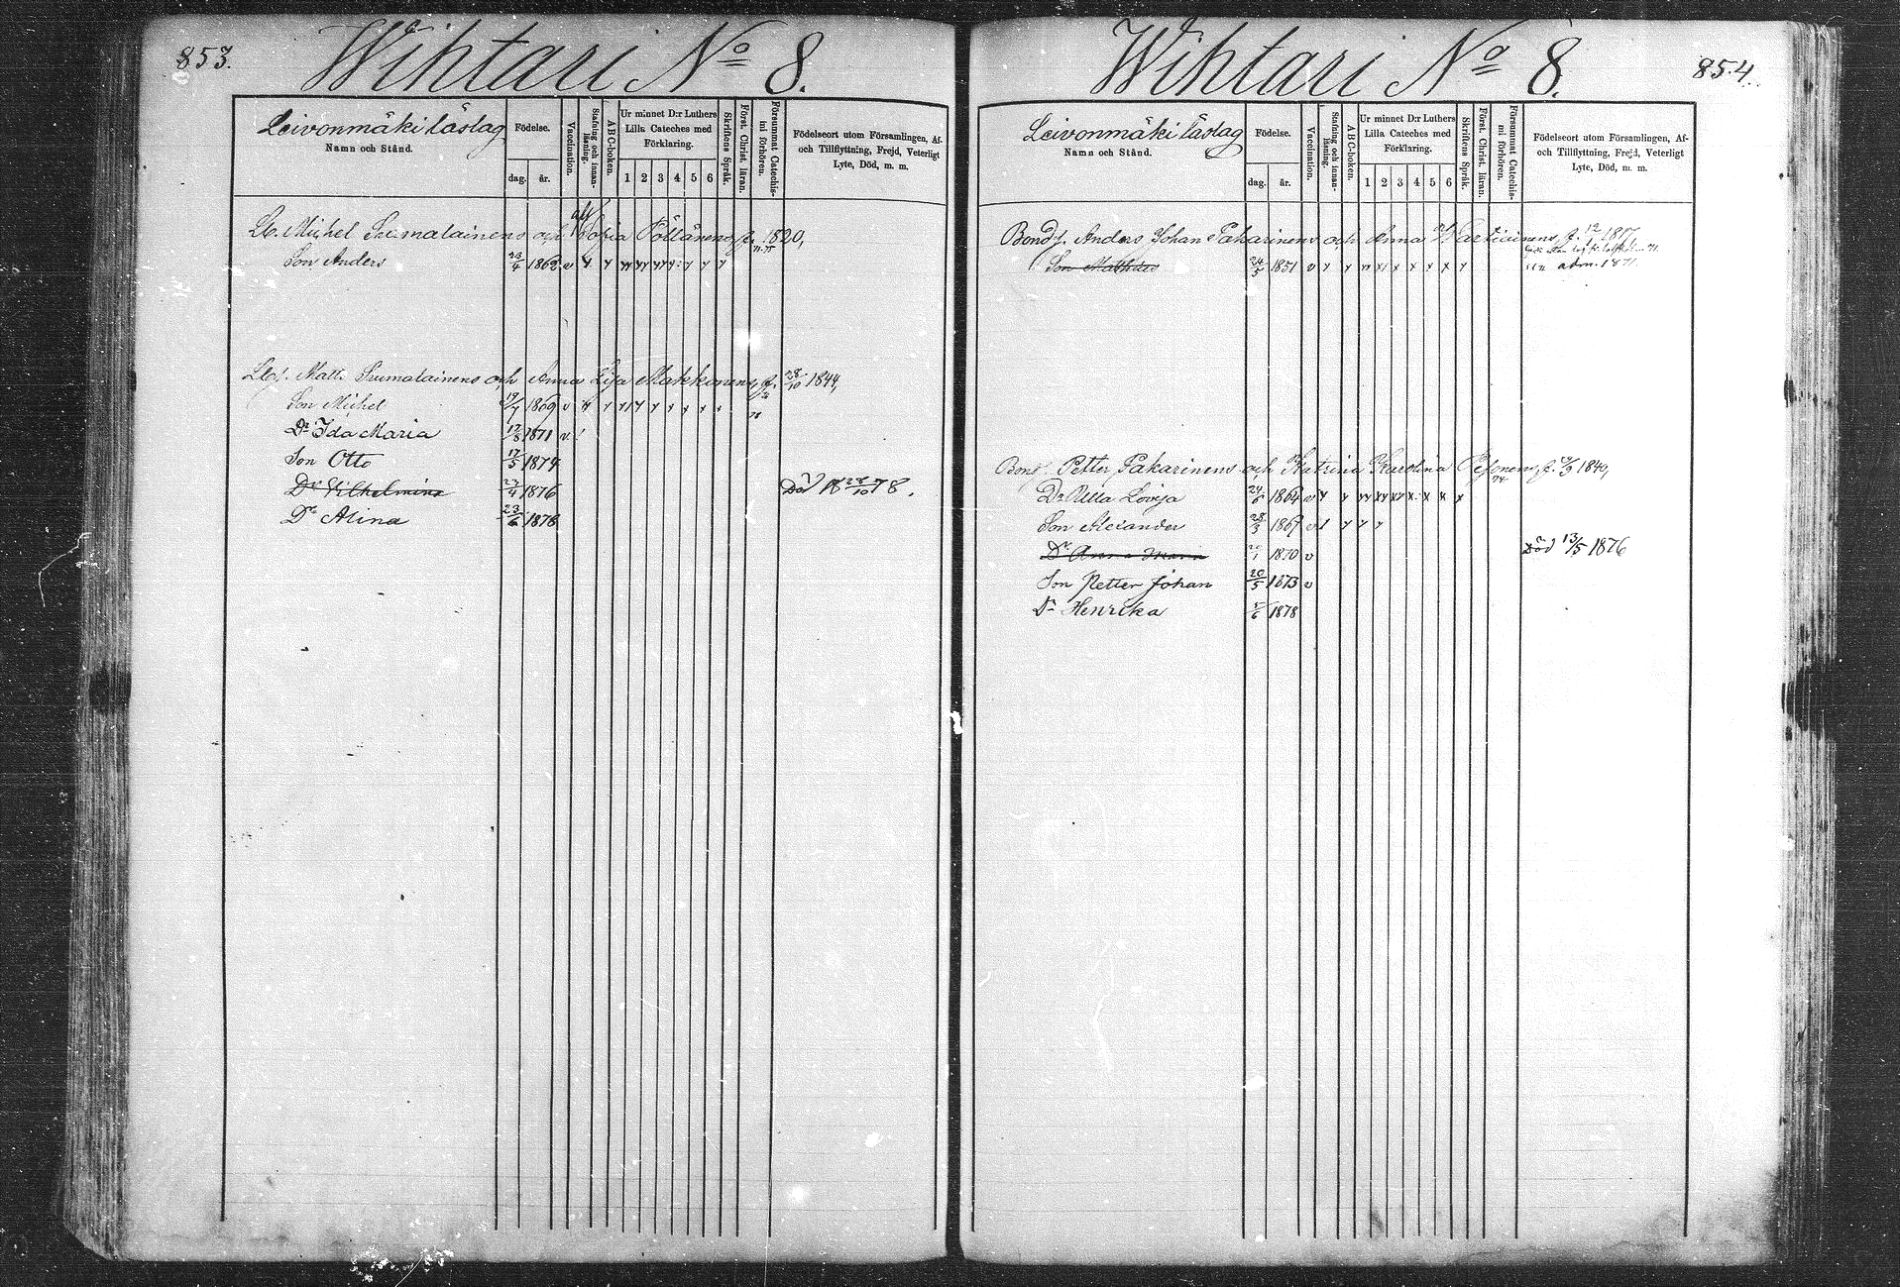 853.
Wihtari No 8.
Leivonmäki läslag
Namn och Stånd.
Födelse.
dag.
år.
Vaccination.
Stafning och innan-läsning.
ABC-boken.
Ur minnet D:r Luthers
Lilla Cateches med
Förklaring.
1 2 3 4 5 6
Skriftens Språk.
Först. Christ. läran.
Försummat Catechis-mi förhören.
Födelseort utom Församlingen, Af-
och Tillflyttning, Frejd, Veterligt
Lyte, Död, m. m.
Michel och Sofia Pöllänens f. 1820,
Son Anders 23/4 1862 v
Matts och Anna Makkonens f. 28/10 1844,
Son Michel 19/7 1869 v
Dr Ida Maria 1871 v
Son Otto 17/5 1874
Dr Vilhelmina 1876 Död 18 28/10 78.
Dr Alina 23/6 1878
854.
Wihtari No 8.
Leivonmäki läslag
Namn och Stånd.
Födelse.
dag.
år.
Vaccination.
Stafning och innan-läsning.
ABC-boken.
Ur minnet D:r Luthers
Lilla Cateches med
Förklaring.
1 2 3 4 5 6
Skriftens Språk.
Först. Christ. läran.
Försummat Catechis-mi förhören.
Födelseort utom Församlingen, Af-
och Tillflyttning, Frejd, Veterligt
Lyte, Död, m. m.
Bondf. Anders Johan Pakarinens och Anna f. 12 1817
Son 24/5 1851 v adm. 1871.
Bondf. Petter Pakarinens och Katrina Karolina f. 1840,
Dr Ulla Lovisa 24/6 1864 v
Son Alexander 28/3 1867 v
Dr Anna 1870 v Död 13/5 1876
Son Petter Johan 20/5 1873 v
Dr Henrika 1878